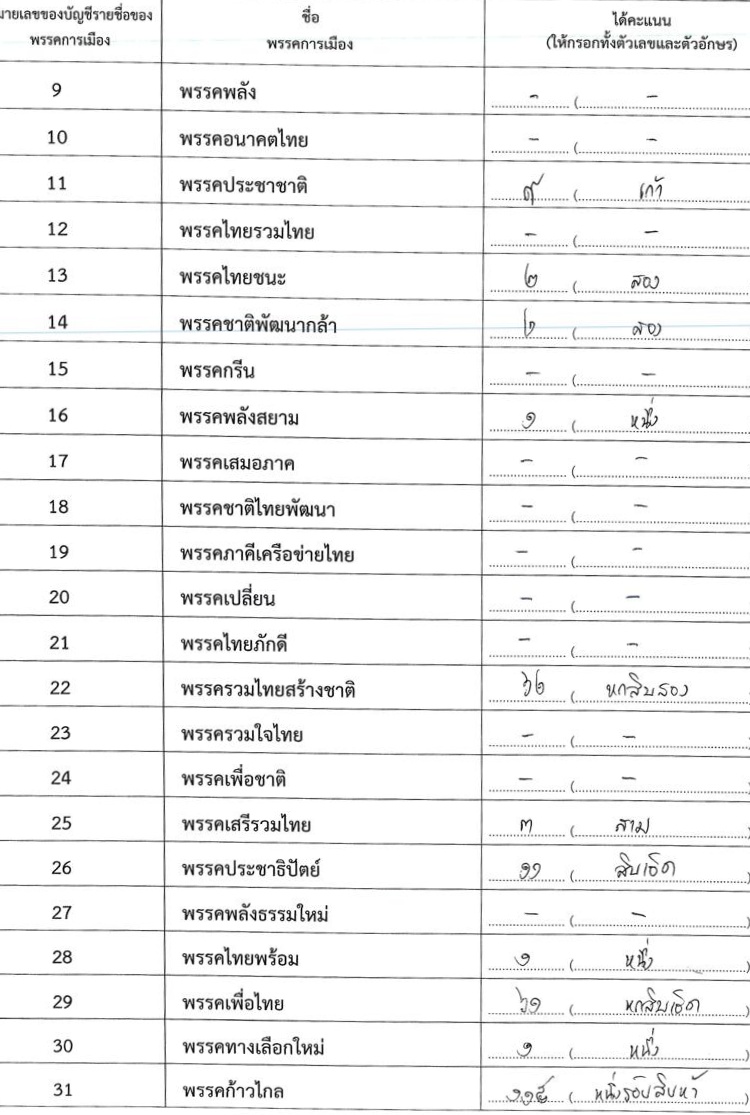 มายเลขของบัญชีรายชื่อของ ชื่อ ได้คะแนน
พรรคการเมือง พรรคการเมือง (ให้กรอกทั้งตัวเลขและตัวอักษร)
9 พรรคพลัง - ( -
10 พรรคอนาคตไทย - ( -
11 พรรคประชาชาติ ๙ ( เก้า
12 พรรคไทยรวมไทย - ( -
13 พรรคไทยชนะ ๒ ( สอง
14 พรรคชาติพัฒนากล้า ๒ ( สอง
15 พรรคกรีน - ( -
16 พรรคพลังสยาม ๑ ( หนึ่ง
17 พรรคเสมอภาค - ( -
18 พรรคชาติไทยพัฒนา - ( -
19 พรรคภาคีเครือข่ายไทย - ( -
20 พรรคเปลี่ยน - ( -
21 พรรคไทยภักดี - ( -
22 พรรครวมไทยสร้างชาติ ๖๒ ( หกสิบสอง
23 พรรครวมใจไทย - ( -
24 พรรคเพื่อชาติ - ( -
25 พรรคเสรีรวมไทย ๓ ( สาม
26 พรรคประชาธิปัตย์ ๑๑ ( สิบเอ็ด
27 พรรคพลังธรรมใหม่ - ( - )
28 พรรคไทยพร้อม ๑ ( หนึ่ง )
29 พรรคเพื่อไทย ๖๑ ( หกสิบเอ็ด )
30 พรรคทางเลือกใหม่ ๑ ( หนึ่ง )
31 พรรคก้าวไกล ๑๑๕ ( หนึ่งร้อยสิบห้า )